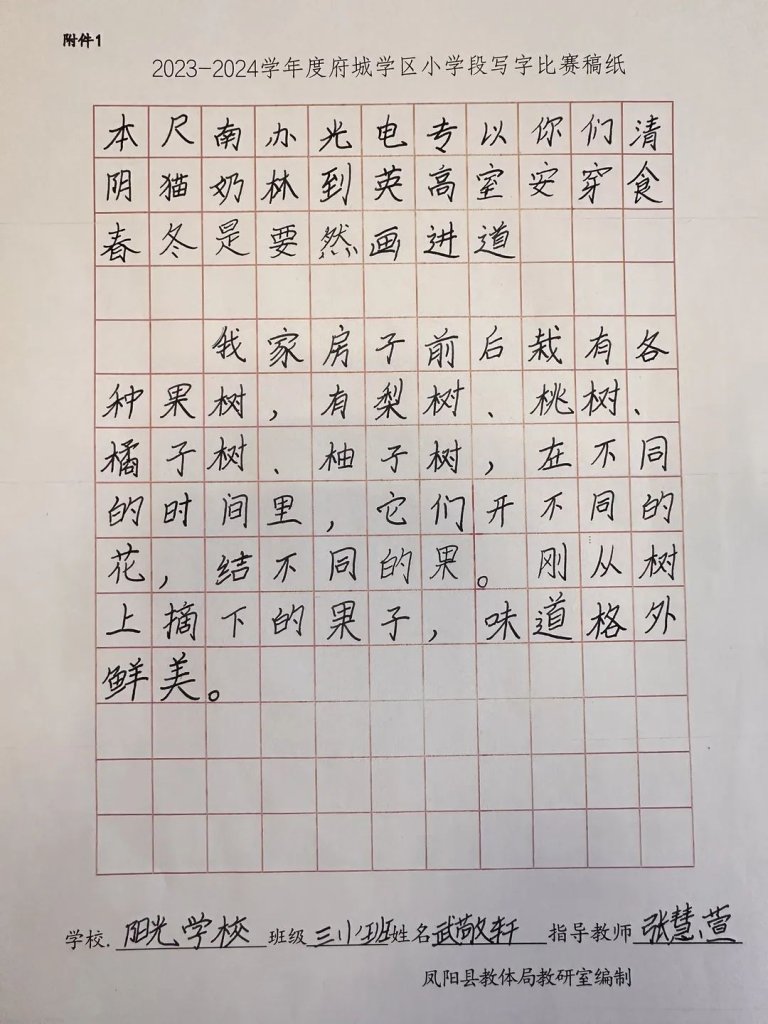 附件1
2023-2024学年度府城学区小学段写字比赛稿纸
本尺南办光电专以你们清
阴猫奶林到英高室安穿食
春冬是要然画进道
我家房子前后栽有各
种果树，有梨树、桃树、
橘子树、柚子树，在不同
的时间里，它们开不同的
花，结不同的果。刚从树
上摘下的果子，味道格外
鲜美。
学校.阳光学校 班级 三小班 姓名 武敬轩 指导教师 张慧萱
凤阳县教体局教研室编制